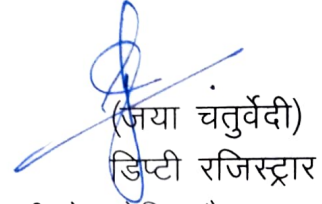 (जया चतुर्वेदी)
डिप्टी रजिस्ट्रार